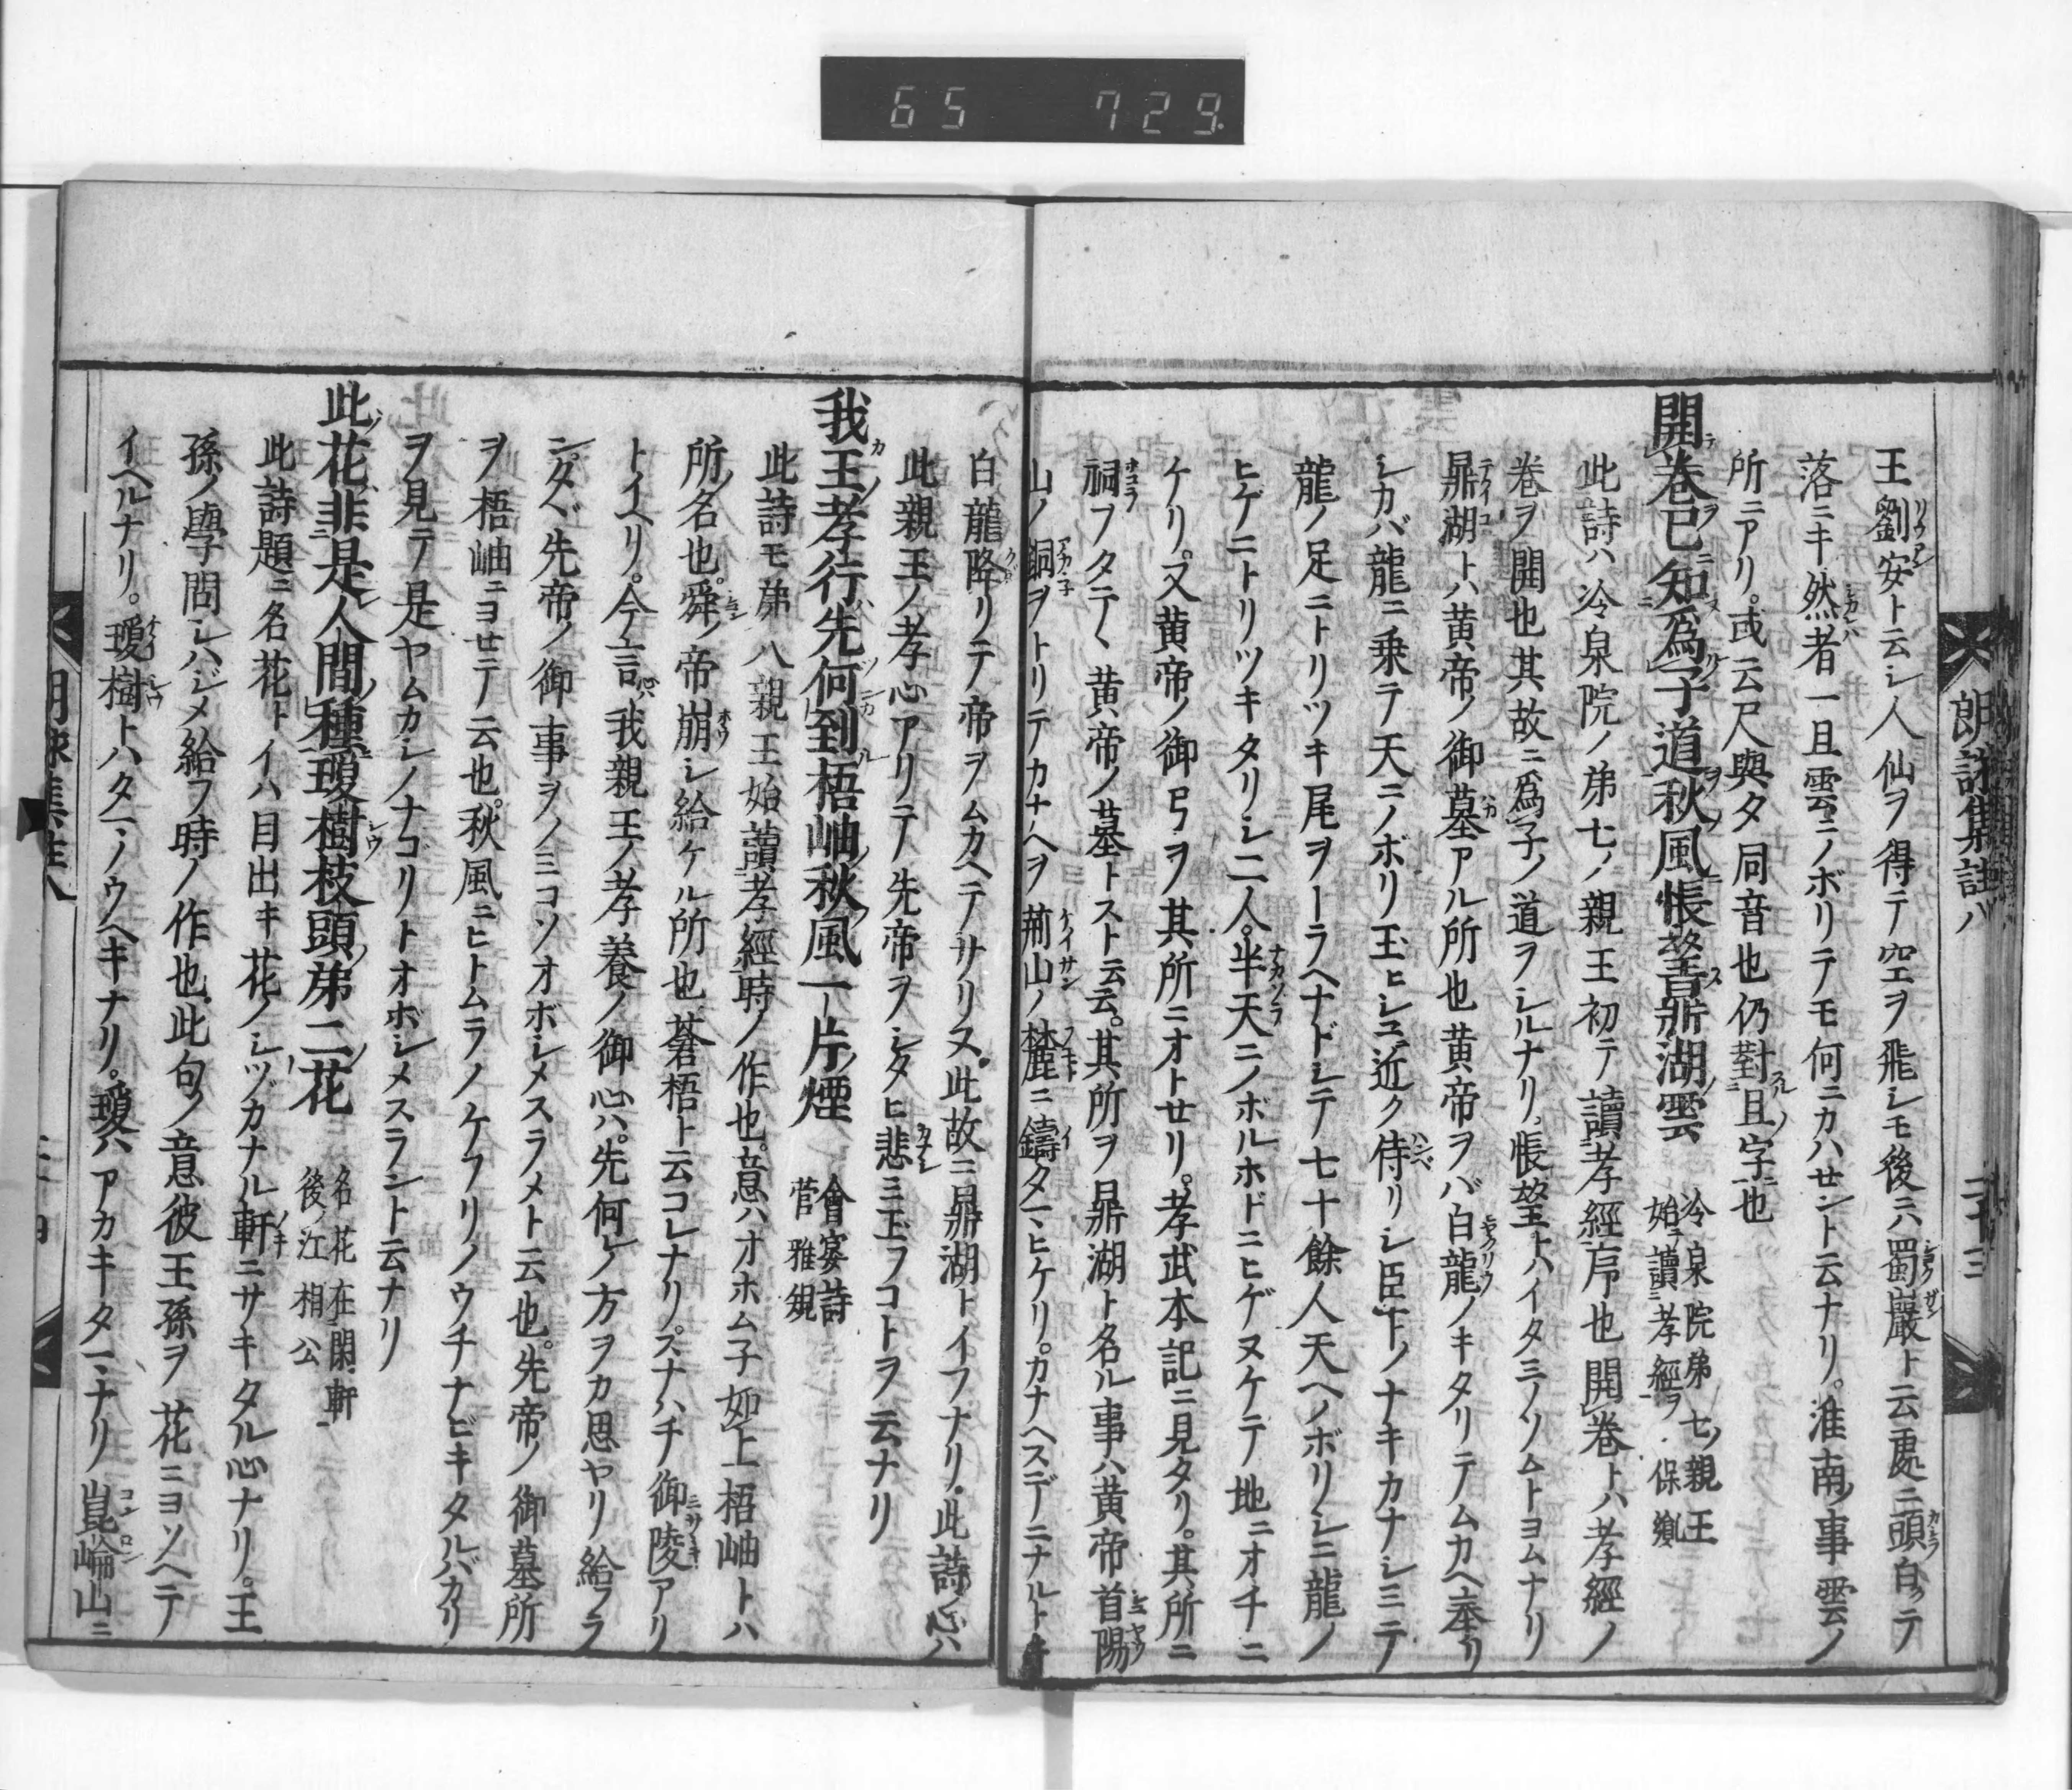 65 729
王劉安ト云シ人仙ヲ得テ空ヲ飛シモ後ニハ蜀巖ト云處ニ頭白ッテ
落ニキ然者一旦雲ニノボリテモ何ニカハセント云ナリ。淮南ノ事雲ノ
所ニアリ。或云尺與夕同音也仍對旦字也
開巻已知為子道秋風悵望鼎湖雲
冷泉院弟七ノ親王
始讀孝經ヲ 保胤
此詩ハ冷泉院ノ弟七ノ親王初テ讀孝經序也開巻トハ孝經ノ
巻ヲ開也其故ニ為子ノ道ヲシルナリ。悵望トハイタミノソムトヨムナリ
鼎湖トハ黄帝ノ御墓アル所也黄帝ヲバ白龍ノキタリテムカヘ奉リ
シカバ龍ニ乗テ天ニノボリ玉ヒシユ近ク侍リシ臣下ノナキカナシミテ
龍ノ足ニトリツキ尾ヲーラヘナドシテ七十餘人天ヘノボリシニ龍ノ
ヒゲニトリツキタリシ二人。半天ニノボルホドニヒゲヌケテ地ニオチニ
ケリ。又黄帝ノ御弓ヲ其所ニオトセリ。孝武本記ニ見タリ。其所ニ
祠フタテヽ黄帝ノ墓トスト云云。其所ヲ鼎湖ト名ル事ハ黄帝首陽
山ノ銅ヲトリテカナヘヲ荊山ノ麓ニ鑄タマヒケリ。カナヘスデニナルトキ
朗詠集註八
二十三
白龍降リテ帝ヲムカヘテサリヌ。此故ニ鼎湖トイフナリ。此詩ノ心ハ
此親王ノ孝心アリテ先帝ヲシタヒ悲ミ玉フコトヲ云ナリ
我王孝行先何到梧岫秋風一片煙
會宴詩
菅雅規
此詩モ弟八親王始讀孝經時ノ作也。意ハオホム子如上梧岫トハ
所ノ名也。舜ノ帝崩シ給ケル所也蒼梧ト云コレナリ。スナハチ御陵アリ
トイヘリ。今言心ハ我親王ノ孝養ノ御心ハ。先何レノ方ヲカ思ヤリ給フラ
ンタヾ先帝ノ御事ヲノミコソオボシメスラメト云也。先帝ノ御墓所
ヲ梧岫ニヨセテ云也。秋風ニヒトムラノケフリノウチナビキタルバカリ
ヲ見テ是ヤムカシノナコリトオボシメスラント云ナリ
此花非是人間種瓊樹枝頭弟二花
名花在閑軒
後ノ江相公
此詩題ニ名花トイハ目出キ花ノシヅカナル軒ニサキタル心ナリ。王
孫ノ學問シハジメ給フ時ノ作也。此句ノ意彼王孫ヲ花ニヨソヘテ
イヘルナリ。瓊樹トハタマノウヘキナリ。瓊ハアカキタマナリ崑崙山ニ